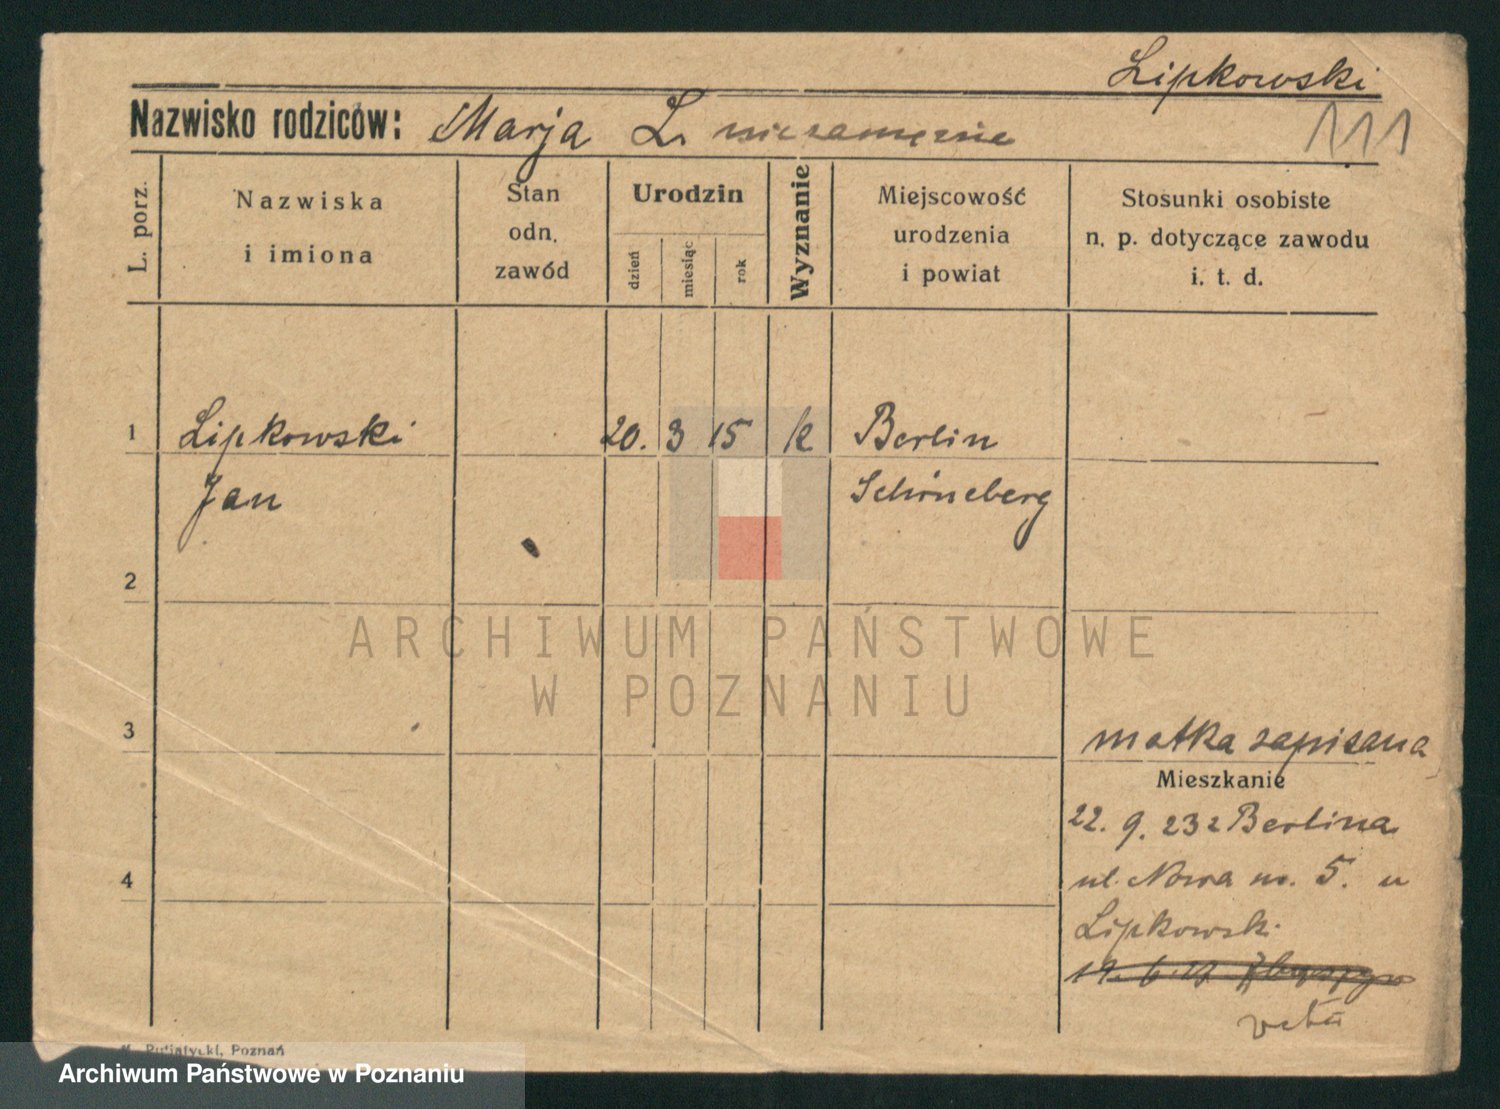 Lipkowski
Nazwisko rodziców: Marja L. niezamężnie
111
L. porz.
Nazwiska
i imiona
Stan
odn.
zawód
Urodzin
dzień
miesiąc
rok
Wyznanie
Miejscowość
urodzenia
i powiat
Stosunki osobiste
n. p. dotyczące zawodu
i. t. d.
1 Lipkowski 20. 3 15 k Berlin
Jan Schöneberg
2
ARCHIWUM PAŃSTWOWE
W POZNANIU
3
matka zapisana
Mieszkanie
22. 9. 23 z Berlina
ul. Nowa nr. 5. u
4
Lipkowski
19. 6. 29
Putiatycki, Poznań
Archiwum Państwowe w Poznaniu